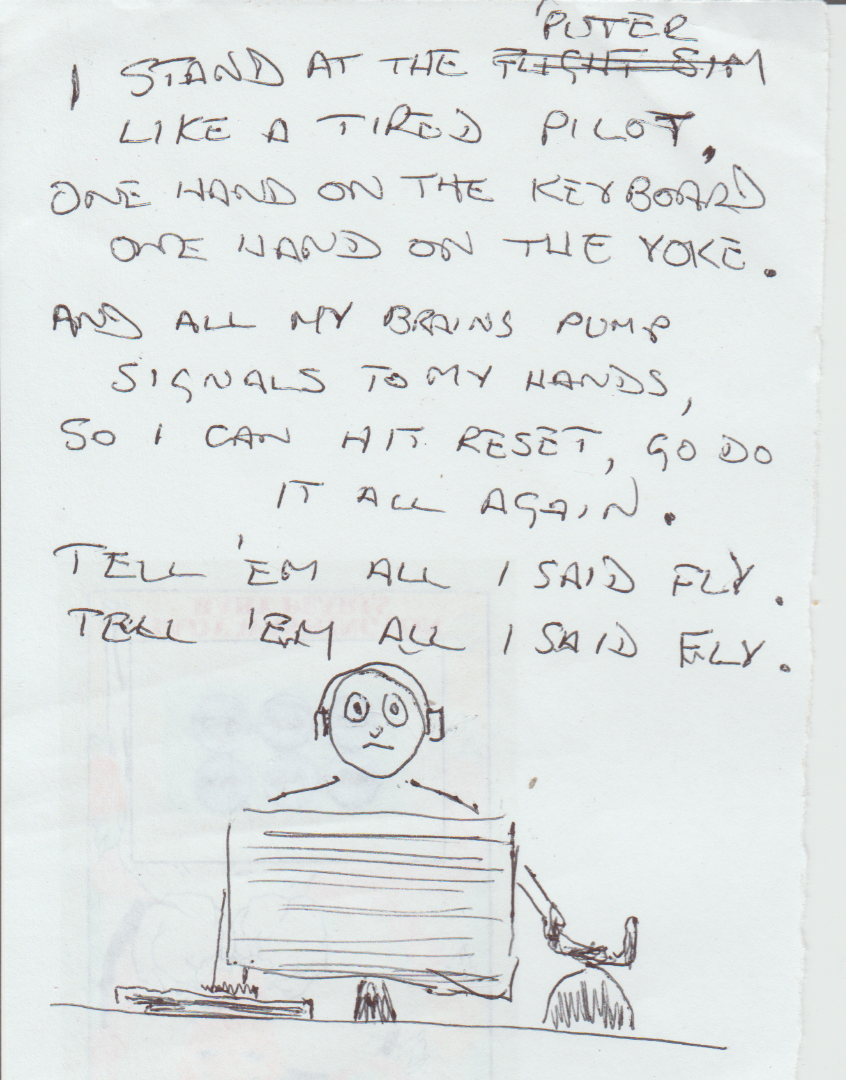 'PUTER
I STAND AT THE FLIGHT SIM
LIKE A TIRED PILOT,
ONE HAND ON THE KEYBOARD
ONE HAND ON THE YOKE.
AND ALL MY BRAINS PUMP
SIGNALS TO MY HANDS,
SO I CAN HIT RESET, GO DO
IT ALL AGAIN.
TELL 'EM ALL I SAID FLY.
TELL 'EM ALL I SAID FLY.